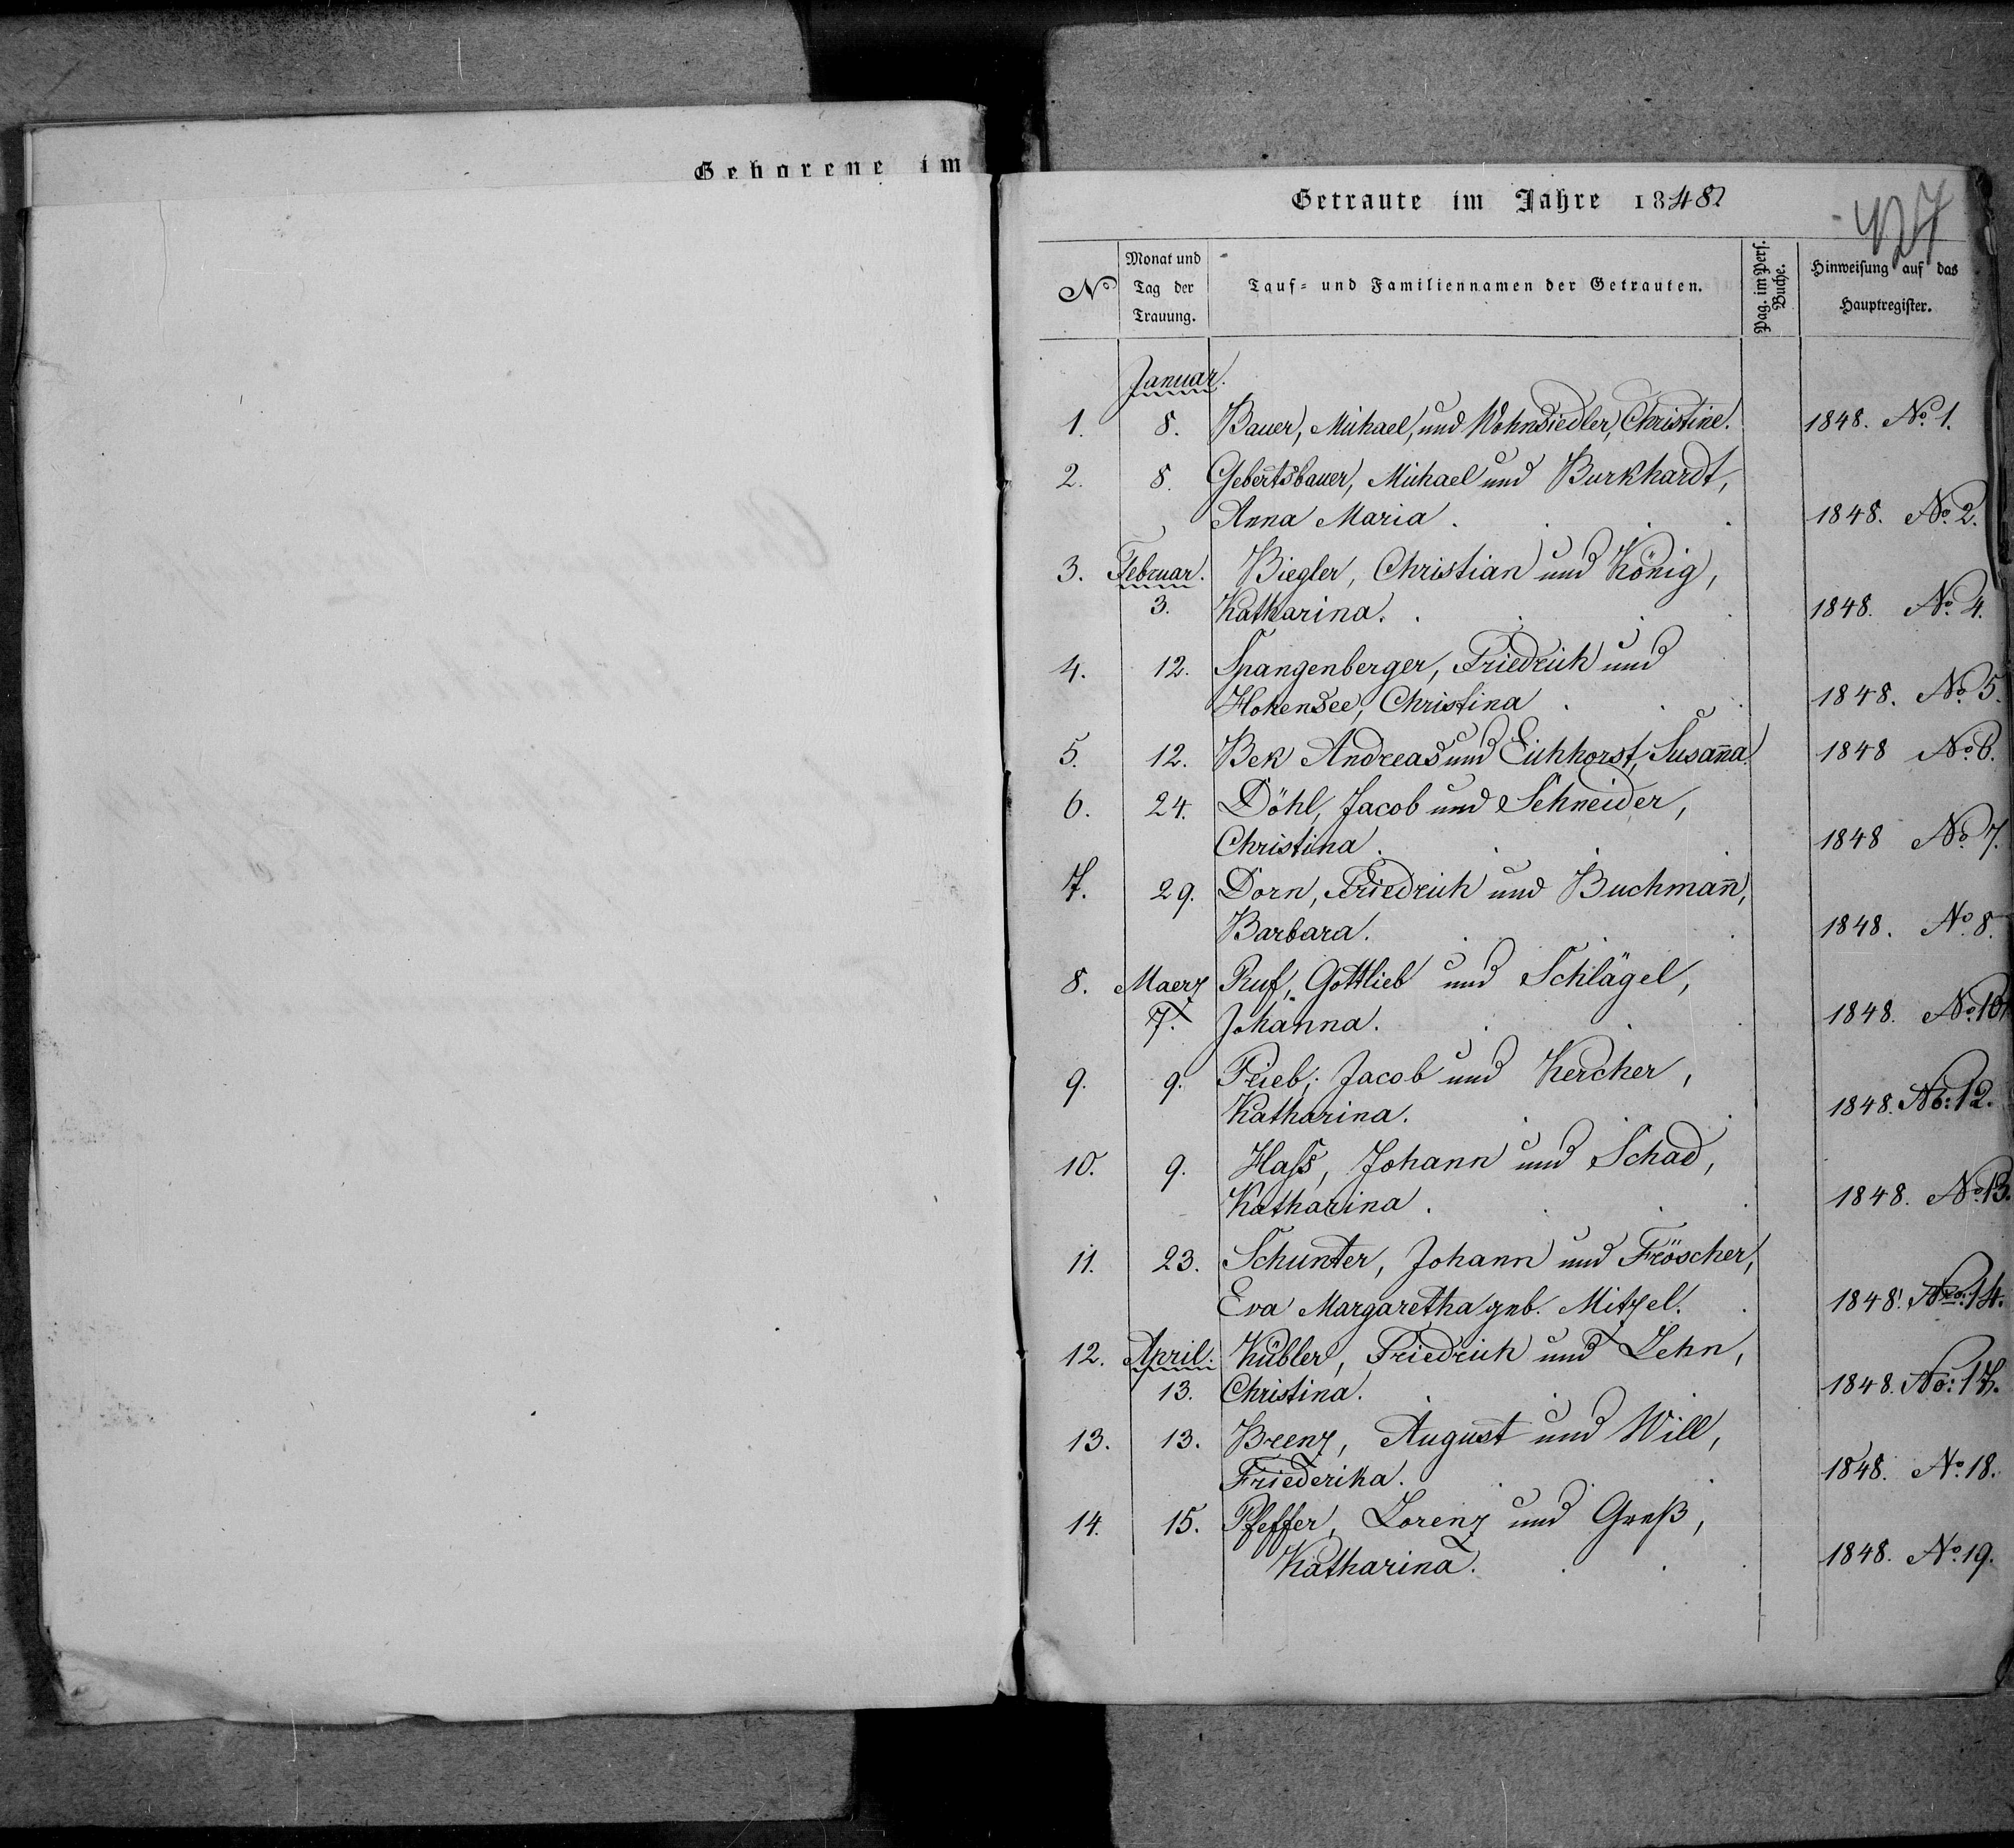 Geborene im
Getraute im Jahre 1848
427
No
Monat und
Tag der
Trauung.
Tauf- und Familiennamen der Getrauten.
Pag. im Pers.
Buche.
Hinweisung auf das
Hauptregister.
Januar.
1. 8. Bauer, Michael, und Wohnsiedler, Christine. 1848. No. 1.
2. 8. Gebertsbauer, Michael und Burkhardt,
Anna Maria. 1848. No. 2.
3. Februar. Biegler, Christian und König,
3. Katharina. 1848. No. 4.
4. 12. Spangenberger, Friedrich und
Hokensee, Christina 1848. No. 5.
5. 12. Bek Andreas und Eichhorst, Susan̄a. 1848 No. 6.
6. 24. Döhl, Jacob und Schneider,
Christina. 1848 No. 7.
7. 29. Dorn, Friedrich und Buchman̄,
Barbara. 1848. No. 8.
8. Maerz Ruf, Gottlieb und Schlägel,
7. Johanna. 1848. No. 10.
9. 9. Frieb, Jacob und Kercher,
Katharina. 1848. No: 12.
10. 9. Hass, Johann und Schad,
Katharina. 1848. No. 13.
11. 23. Schunter, Johann und Fröscher,
Eva Margaretha geb. Mitzel. 1848. Nro: 14.
12. April. Kübler, Friedrich und Zehn,
13. Christina. 1848. No: 17.
13. 13. Brenz, August und Will,
Friederika. 1848. No. 18.
14. 15. Pfeffer, Lorenz und Groß,
Katharina. 1848. No. 19.